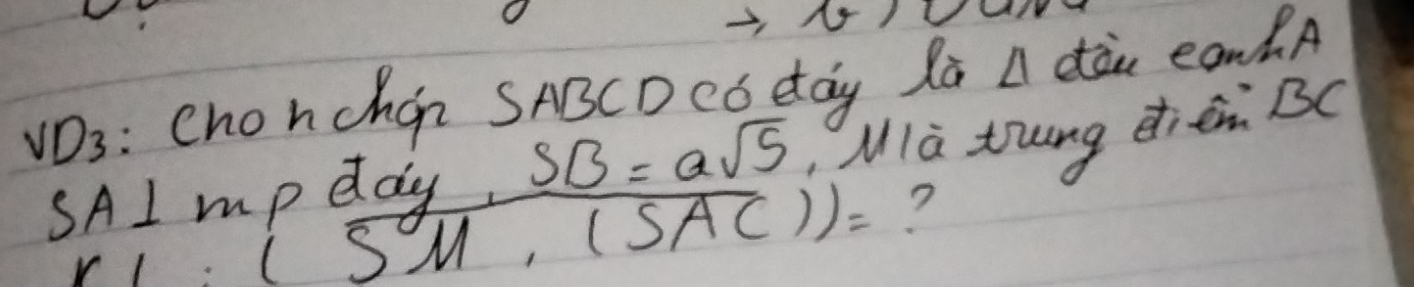 VD3: Cho h chóp SABCD có đáy là Δ đều cạnh A
SA⊥mp đáy, SB = a√5, M là trung điểm BC
(SM, (SAC)) = ?